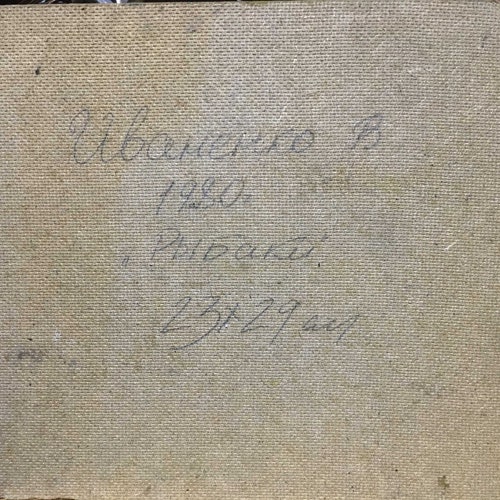 Иваненко В
1980г
"Рыбаки"
23х29 см